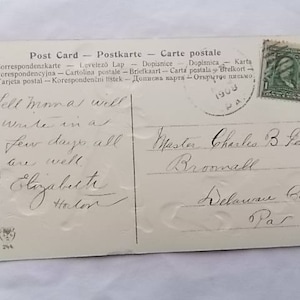 Post Card – Postkarte – Carte postale
Correspondenzkarte – Levelező Lap – Dopisnice – Dopisnica – Karta
Korespondencyjna – Cartolina postale – Briefkaart – Cartão postal – Brefkort
Tarjeta postal – Korrespondenskort – Открытое письмо
1908
Pa
Tell mama we will
write in a
few days all
are well
Elizabeth
Horton
Master Charles B
Broomall
Delaware Co
Pa